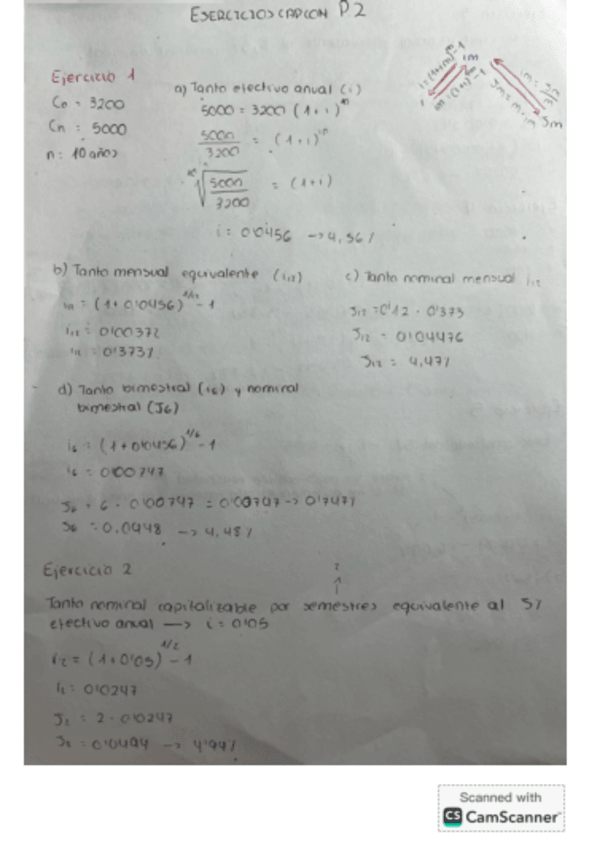 ESERCICIOS CAPCON P2
Ejercicio 1
C0 = 3200
Cn = 5000
n = 10 años
a) Tanto efectivo anual (i)
5000 = 3200 (1 + i)^10
5000/3200 = (1 + i)^10
10√(5000/3200) = (1 + i)
i = 0'0456 → 4,56%
im
Jm
b) Tanto mensual equivalente (i12)
i12 = (1 + 0'0456)^1/12 - 1
i12 = 0'00372
i12 = 0'373%
c) Tanto nominal mensual i12
J12 = 0'12 · 0'373
J12 = 0'04476
J12 = 4,47%
d) Tanto bimestral (i6) y nominal
bimestral (J6)
i6 = (1 + 0'0456)^1/6 - 1
i6 = 0'00747
J6 = 6 · 0'00747 = 0'00747 -> 0'747%
J6 = 0,0448 -> 4,48%
Ejercicio 2
Tanto nominal capitalizable por semestres equivalente al 5%
efectivo anual → i = 0'05
i2 = (1 + 0'05)^1/2 - 1
i2 = 0'0247
J2 = 2 · 0'0247
J2 = 0'0494 → 4'94%
Scanned with
CS CamScanner